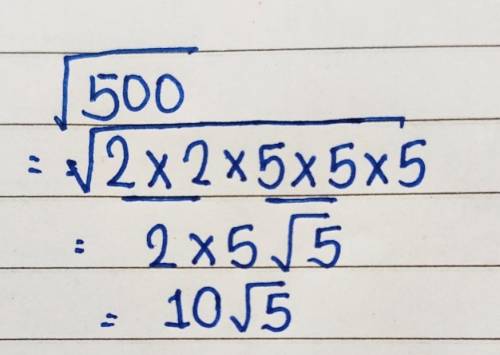 √500
= √2×2×5×5×5
= 2×5√5
= 10√5